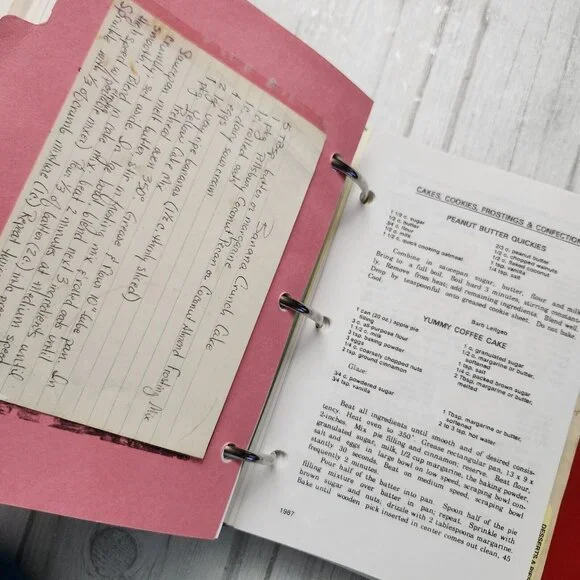 Banana Crunch Cake
5 Tbsp butter or margarine
1 pkg Pillsbury Coconut Pecan or Coconut Almond Frosting Mix
1 c. rolled oats
1 c. dairy sour cream
4 eggs
2 lg very ripe bananas (1½ c. thinly sliced)
1 pkg Yellow Cake Mix
Preheat oven 350° Grease & flour 10" tube pan. In
saucepan melt butter, stir in frosting mix & rolled oats until
crumbly, set aside. In
smooth. Blend in cake mix & beat 2 minutes at medium
1/3 of batter (2 c.) into
with 1/3 of crumb mixture (1 c.) Repeat
CAKES, COOKIES, FROSTINGS & CONFECTIO
PEANUT BUTTER QUICKIES
1 1/2 c. sugar
1/2 c. butter
1/4 c. flour
1/2 c. milk
1 1/2 c. quick cooking oatmeal
2/3 c. peanut butter
1/2 c. chopped walnuts
1 tsp. vanilla
1/4 tsp. salt
Combine in saucepan sugar, butter, flour and milk.
Bring to a full boil. Boil hard 3 minutes, stirring constant-
ly. Remove from heat; add remaining ingredients. Blend well.
Drop by teaspoonful onto greased cookie sheet. Do not bake.
Cool.
Barb Leitgeb
YUMMY COFFEE CAKE
1 can (20 oz.) apple pie
filling
3 c. all-purpose flour
1 1/2 c. milk
3 tsp. baking powder
3 eggs
3/4 c. coarsely chopped nuts
2 tsp. ground cinnamon
1 c. granulated sugar
1/2 c. margarine or butter,
softened
1 tsp. salt
1/4 c. packed brown sugar
2 Tbsp. margarine or butter,
melted
Glaze:
3/4 c. powdered sugar
3/4 tsp. vanilla
1 Tbsp. margarine or butter,
softened
2 to 3 tsp. hot water
Beat all ingredients until smooth and of desired consis-
tency. Heat oven to 350°. Grease rectangular pan, 13 x 9 x
2-inches. Mix pie filling and cinnamon; reserve. Beat flour,
granulated sugar, milk, 1/2 cup margarine, the baking powder,
salt and eggs in large bowl on low speed, scraping bowl con-
stantly 30 seconds. Beat on medium speed, scraping bowl
frequently 2 minutes.
Pour half of the batter into pan. Spoon half of the pie
filling mixture over batter in pan; repeat. Sprinkle with
brown sugar and nuts; drizzle with 2 tablespoons margarine.
Bake until wooden pick inserted in center comes out clean, 45
1987
DESSERTS & PIES